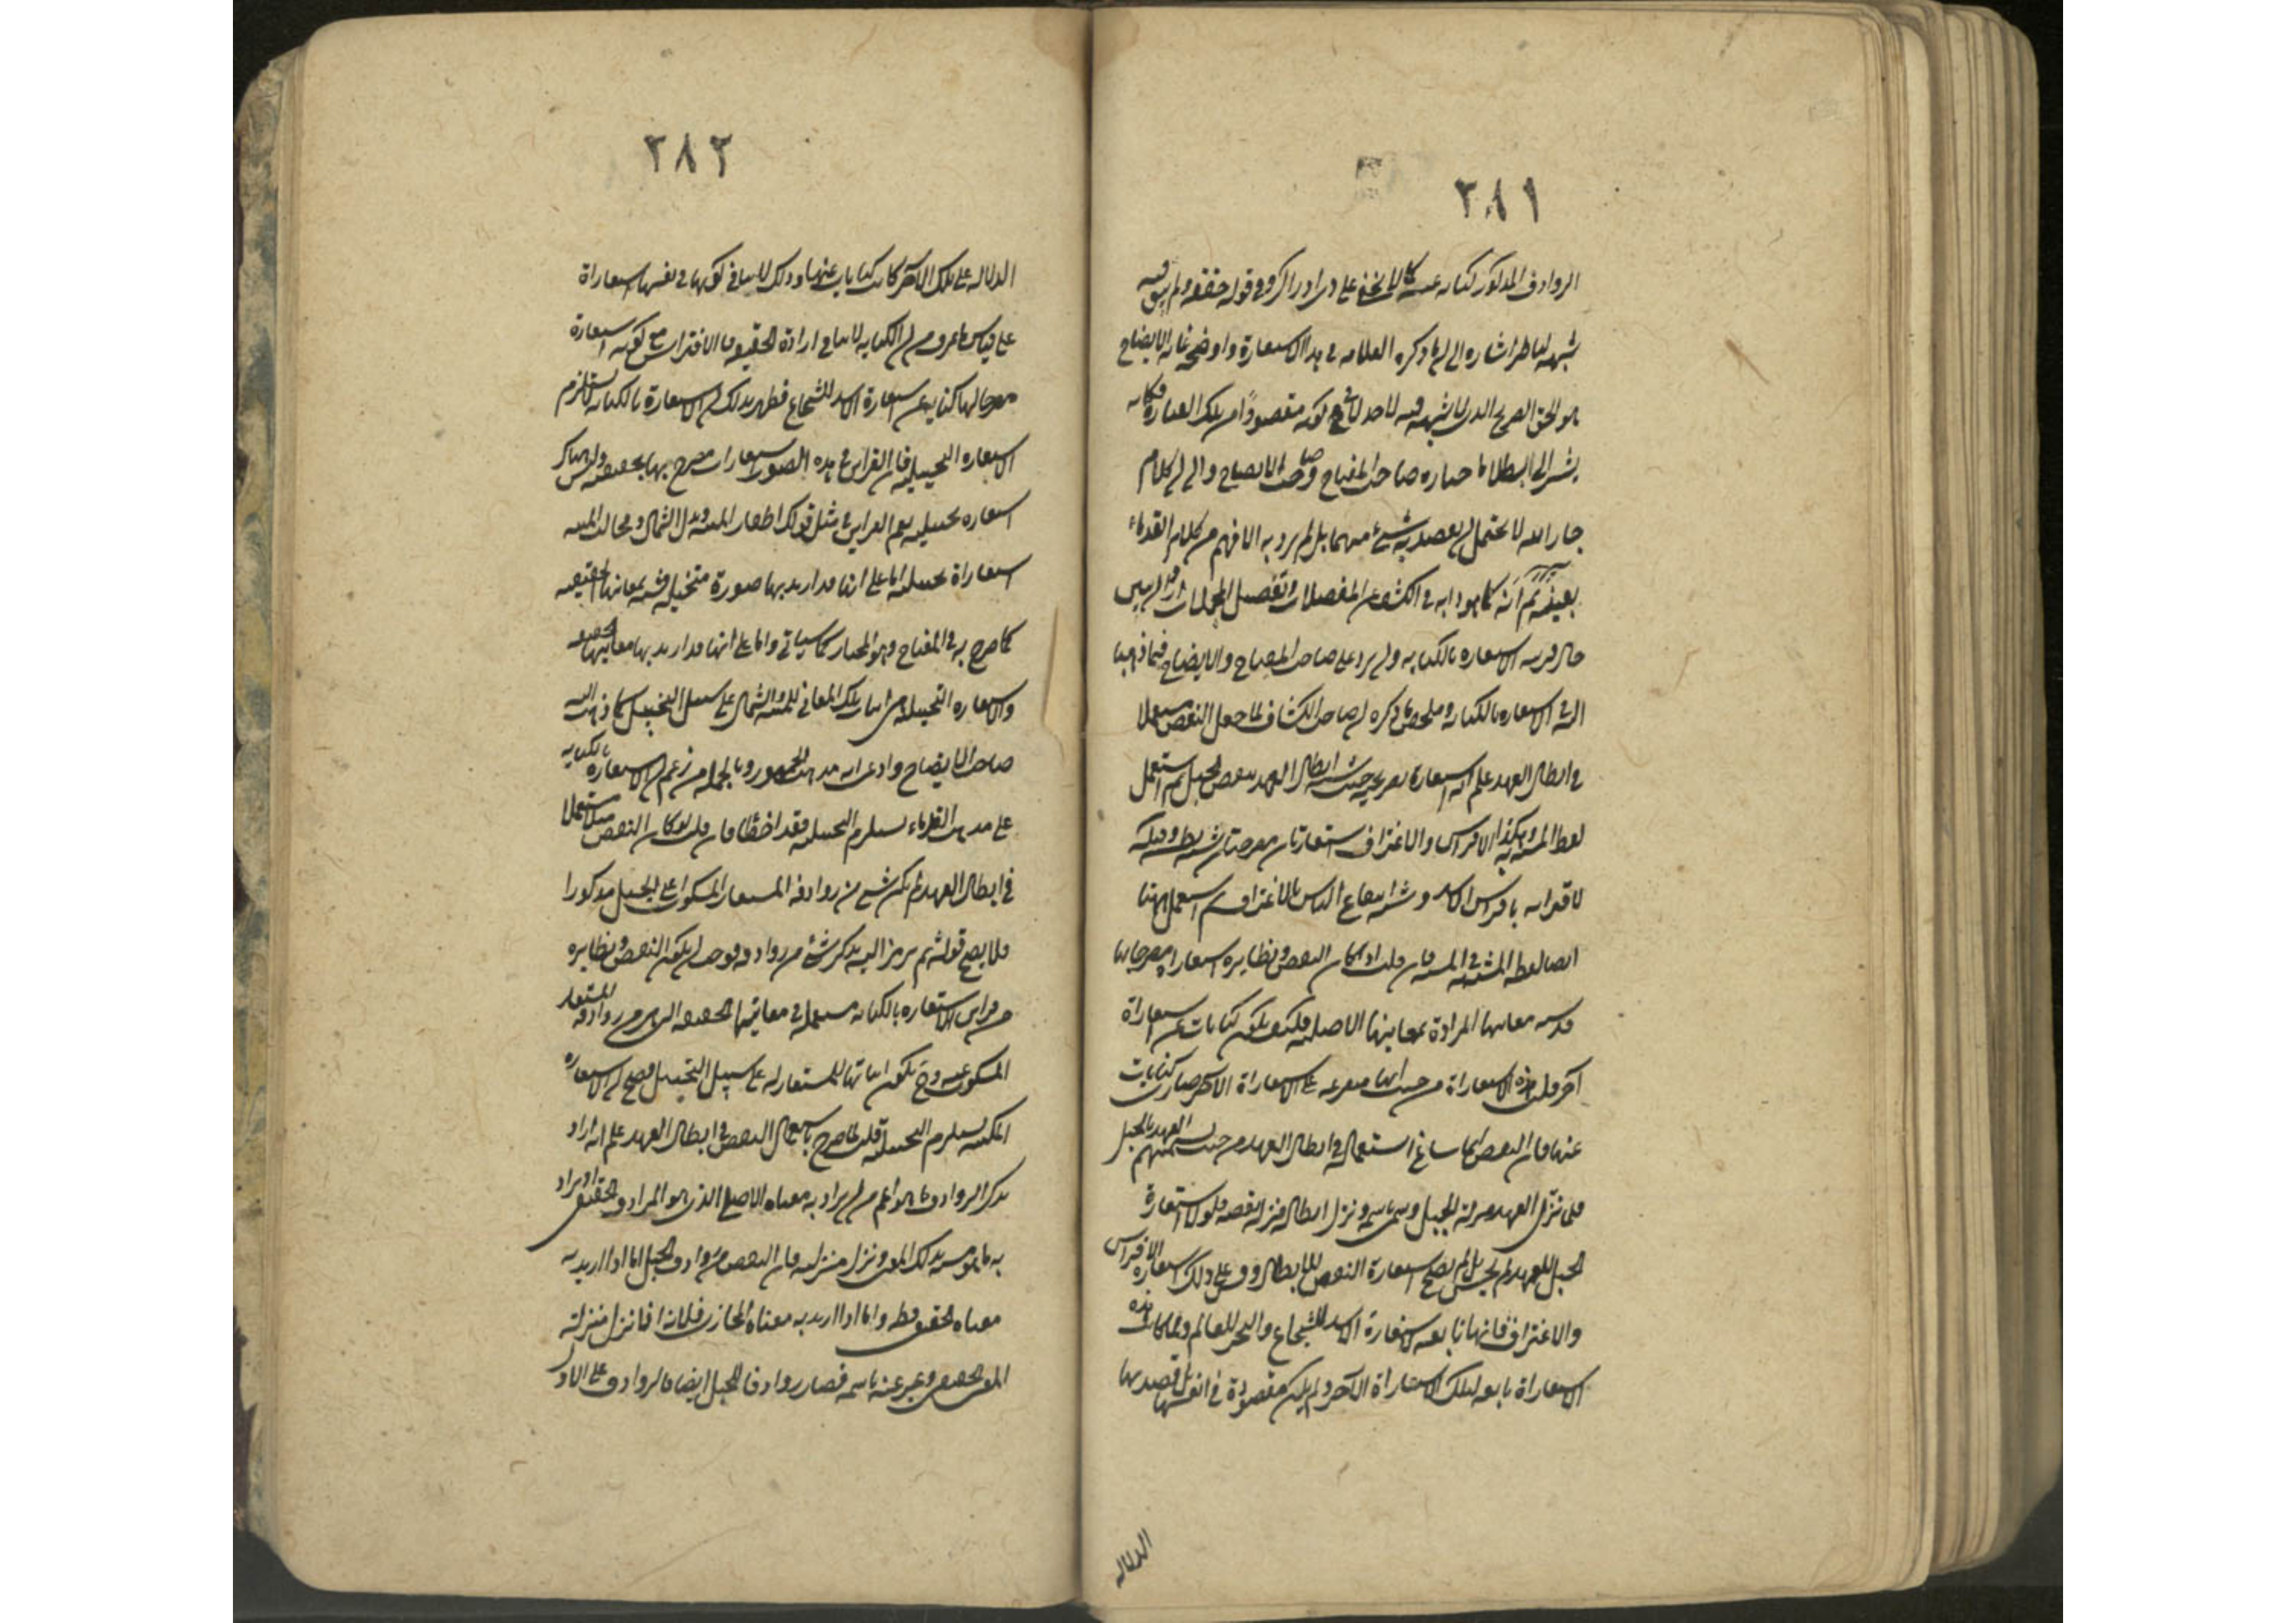 ٢٨١
الروادف المذكور كناية عنه كما لا يخفى على ذى ادراك وفي قوله حققه ولم يبق فيه
شبهة لناظر اشارة الى ان ما ذكره العلامة في هذا الاستعارة واوضحه غاية الايضاح
هو الحق الصريح الذى لا شبهة فيه لاحد في كونه مقصودا من تلك العبارة فكانه
يشير الى ابطال ما اختاره صاحب المفتاح وصاحب الايضاح والى ان كلام
جار الله لا يحتمل ان يقصد به شئ منهما بل لم يرد به الا ما فهم من كلام القدماء
بعينه ثم انه كما هو دابه في الكشف عن المعضلات وتفصيل المجملات اراد ان يبين
حال قرينة الاستعارة بالكناية وان يرد على صاحب المفتاح والايضاح فيما ذهبا
اليه في الاستعارة بالكناية وملخص ما ذكره ان صاحب الكشاف لما جعل النقض مستعملا
في ابطال العهد علم انه استعارة تصريحية حيث شبه ابطال العهد بنقض الحبل ثم استعمل
لفظ المشبه به وهكذا الافتراس والاغتراف استعارتان مصرحتان شبه بطشه وقتله
لاقرانه بافتراس الاسد وشبه انتفاع الناس به بالاغتراف ثم استعمل ههنا
ايضا لفظ المشبه به في المشبه فان قلت اذا كان النقض ونظايره استعارات مصرحا بها
قد شبه معانيها المرادة بمعانيها الاصلية فكيف تكون كنايات عن استعاراة
آخر قلت هذه الاستعاراة من حيث انها متفرعة على الاستعاراة الاخر صارت كنايات
عنها فان النقض انما ساغ استعماله في ابطال العهد من حيث تسميتهم العهد بالحبل
فلما نزل العهد منزلة الحبل وسمى باسمه ونزل ابطاله منزلة نقضه فلولا استعارة
الحبل للعهد لم يحسن بل لم يصح استعارة النقض للابطال وقس على ذلك استعارة الافتراس
والاغتراف فانها تابعة لاستعارة الاسد للشجاع والبحر للعالم ولما كانت هذه
الاستعاراة تابعة لتلك الاستعاراة الاخر ولم يكن مقصودة في انفسها بل قصد بها
الدلالة
٢٨٢
الدلالة على تلك الاخر كانت كنايات عنها وذلك لا ينافي كونها في نفسها استعاراة
على قياس ما عرف من ان الكناية لا ينافي ارادة الحقيقة فالافتراس مع كونه استعارة
مصرحا بها كناية عن استعارة الاسد للشجاع فظهر بذلك ان الاستعارة بالكناية لا يستلزم
الاستعارة التخييلية فان القراين في هذه الصور استعارات مصرح بها تحقيقية وليس هناك
استعارة تخييلية نعم القراين في مثل قولك اظفار المنية ويد الشمال ومخالب المنية
استعاراة تخييلية اما على انها قد اريد بها صورة متخيلة شبيه بمعانيها الحقيقية
كما صرح به في المفتاح وهو المختار كما سياتي واما على انها قد اريد بها معانيها الحقيقية
والاستعارة التخييلية هي اثبات تلك المعاني للمنية والشمال على سبيل التخييل كما ذهب اليه
صاحب الايضاح وادعى انه مذهب الجمهور وبالجملة من زعم ان الاستعارة بالكناية
على مذهب القدماء يستلزم التخييلية فقد اخطأ فان قلت لو كان النقض مثلا مستعملا
في ابطال العهد لم يكن شئ من روادف المستعار المسكوت اعنى الحبل مذكورا
فلا يصح قوله ثم يرمز اليه بذكر شئ من روادفه فوجب ان يكون النقض ونظايره
من قراين الاستعارة بالكناية مستعملة في معانيها الحقيقية التي هي من روادف المستعار
المسكوت عنه وح يكون اثباتها للمستعار له على سبيل التخييل فصح ان الاستعارة
المكنية يستلزم التخييلية قلت لما صرح باستعمال النقض في ابطال العهد علم انه اراد
بذكر الروادف ما هو اعم من ان يراد به معناه الاصلي الذى هو المراد الحقيقى او يراد
به ما هو مشبه بذلك المعنى ونزل منزلته فان النقض من روادف الحبل اما اذا اريد به
معناه الحقيقى فظ واما اذا اريد به معناه المجازى فلانه اذا نزل منزلة
المعنى الحقيقى وعبر عنه باسمه فصار روادفا للحبل ايضا فالروادف على الاول